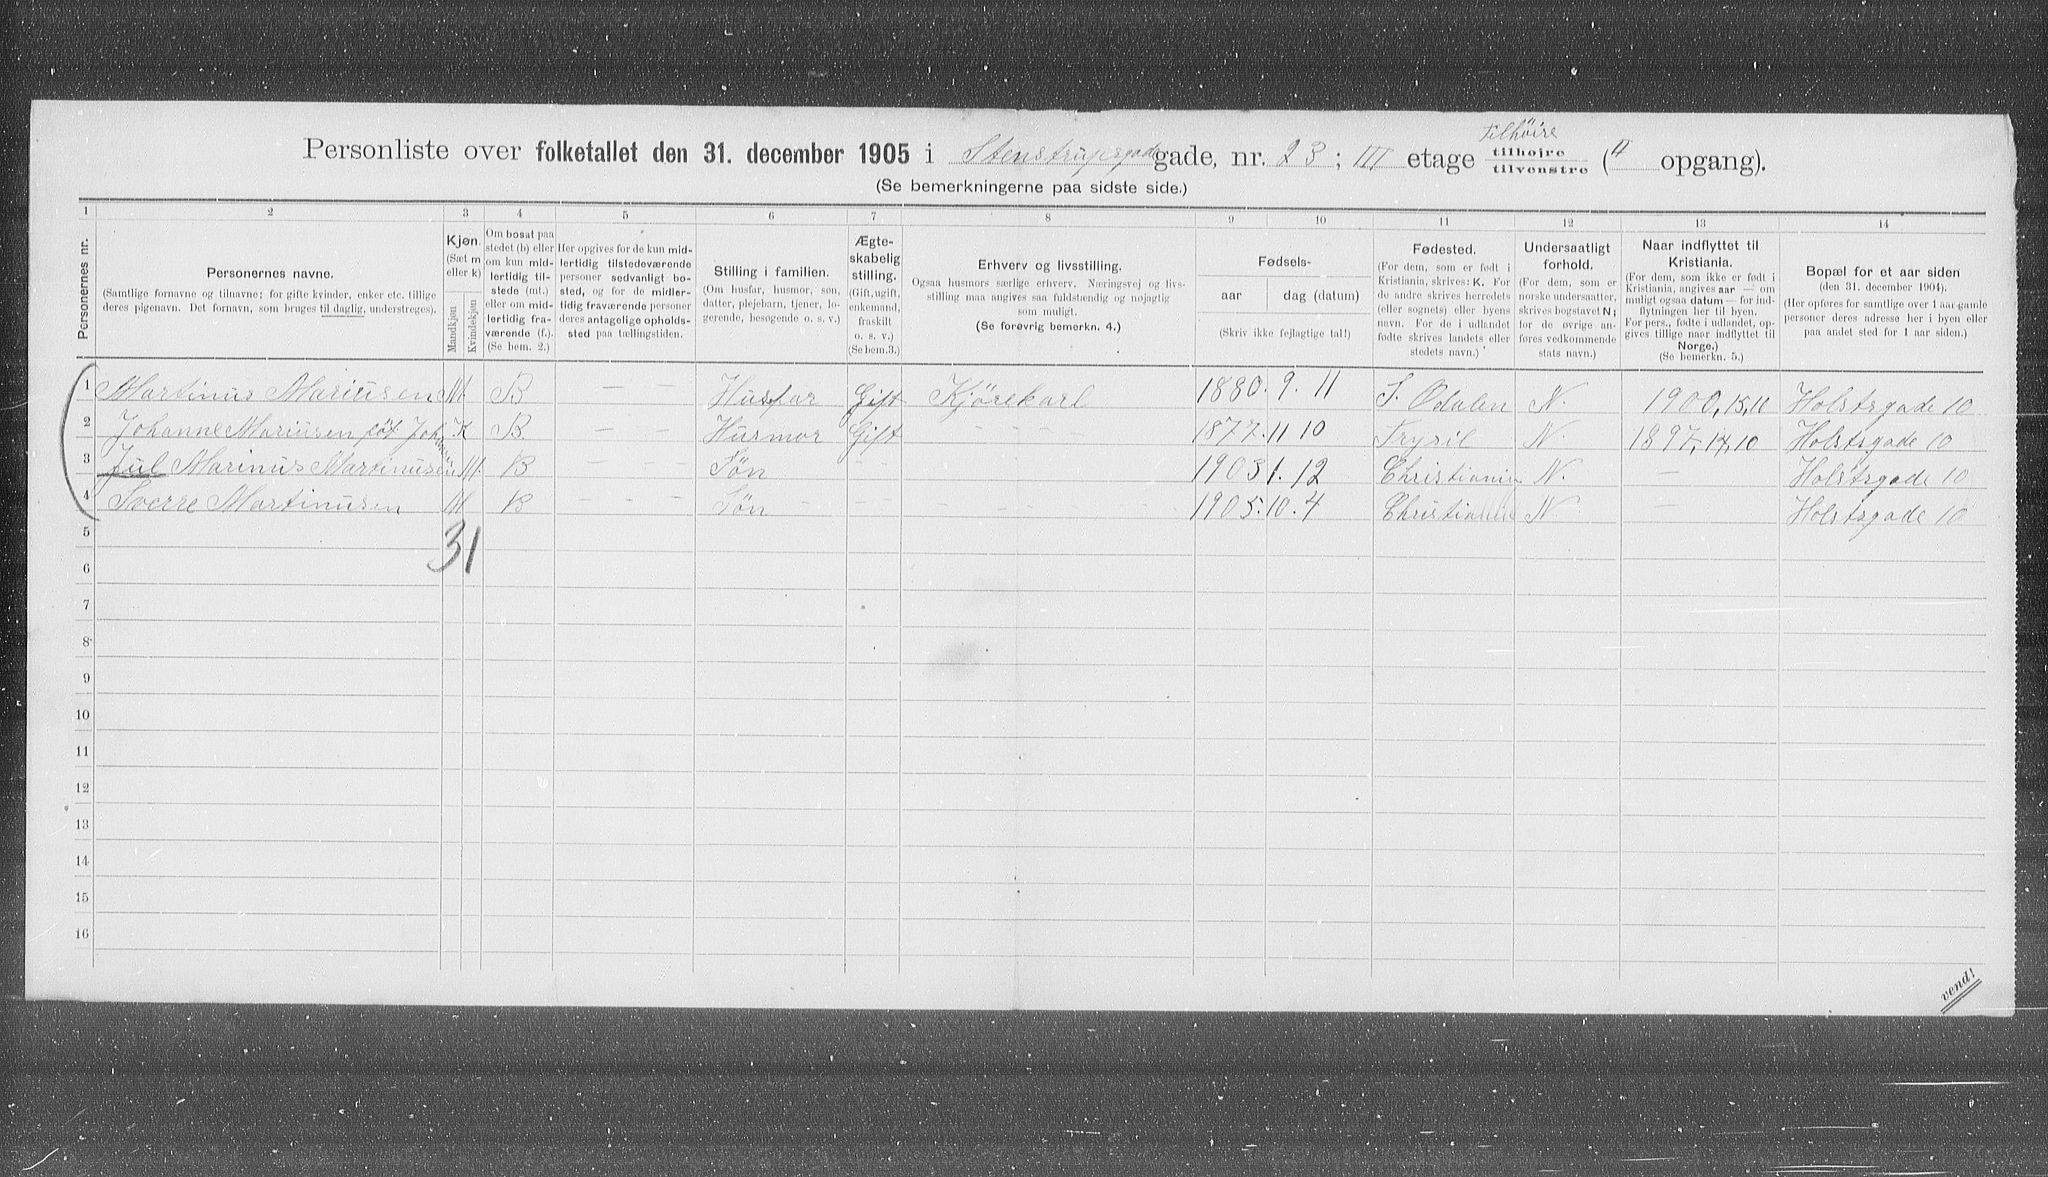 Tilhöire
Personliste over folketallet den 31. december 1905 i Stenstrupsgade gade, nr. 23; III etage tilhøjre tilvenstre (II opgang).
(Se bemerkningerne paa sidste side.)
1 2 3 4 5 6 7 8 9 10 11 12 13 14
Personernes nr.
Personernes navne.
(Samtlige fornavne og tilnavne; for gifte kvinder, enker etc. tillige deres pigenavn. Det fornavn, som bruges til daglig, understreges).
Kjøn.
(Sæt m eller k)
Mandkjøn
Kvindekjøn
Om bosat paa stedet (b) eller om kun midlertidig tilstede (mt.) eller om midlertidig fraværende (f.). (Se bem. 2.)
Her opgives for de kun midlertidig tilstedeværende personer sedvanligt bosted, og for de midlertidig fraværende personer deres antagelige opholdssted paa tællingstiden.
Stilling i familien.
(Om husfar, husmor, søn, datter, plejebarn, tjener, logerende, besøgende o. s. v.)
Ægteskabelig stilling.
(Gift, ugift, enkemand, fraskilt o. s. v.)
(Se bem. 3.)
Erhverv og livsstilling.
Ogsaa husmors særlige erhverv. Næringsvej og livsstilling maa angives saa fuldstændig og nøjagtig som muligt.
(Se forøvrig bemerkn. 4.)
Fødsels-
aar
dag (datum)
(Skriv ikke fejlagtige tal!)
Fødested.
(For dem, som er født i Kristiania, skrives: K. For de andre skrives herredets (eller sognets) eller byens navn. For de i udlandet fødte skrives landets eller stedets navn.)
Undersaatligt forhold.
(For dem, som er norske undersaatter, skrives bogstavet N; for de øvrige anføres vedkommende stats navn.)
Naar indflyttet til Kristiania.
(For dem, som ikke er født i Kristiania, angives aar — om muligt ogsaa datum — for indflytningen her til byen. For pers., fødte i udlandet, opgives tillige naar indflyttet til Norge.)
(Se bemerkn. 5.)
Bopæl for et aar siden
(den 31. december 1904).
(Her opføres for samtlige over 1 aar gamle personer deres adresse her i byen eller paa andet sted for 1 aar siden.)
1 Martinus Mariusen M. B — — Husfar Gift Kjörekarl 1880. 9. 11 S. Odalen N. 1900, 15, 10 Holstsgade 10
2 Johanne Mariusen föt Johansen K B — — Husmor Gift - - - - 1877. 11 10 Trysil N. 1897, 14, 10 Holstsgade 10
3 Jul Marinus Martinusen M. B — — — Søn - - - 1903 1. 12 Christiania N. — Holstsgade 10
4 Sverre Martinusen M B — — — Søn - - - 1905. 10. 4 Christiania N — Holstsgade 10
31
5
6
7
8
9
10
11
12
13
14
15
16
vend!